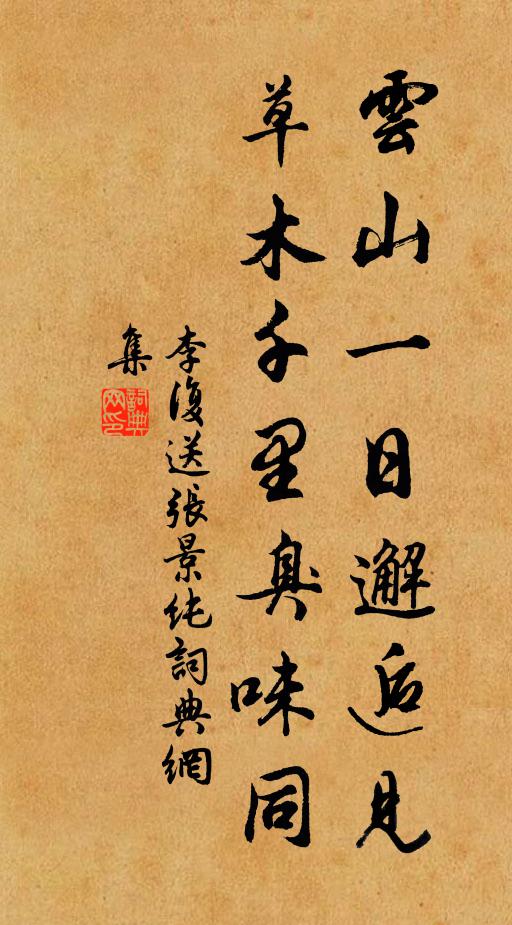 雲山一日邂逅見
草木千里臭味同
李復送張景純詞典網
集
詞典
网印